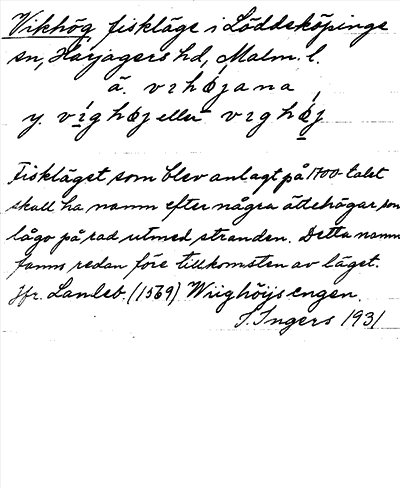 Vikhög, fiskläge i Löddeköpinge
sn, Harjagers hd, Malm. l.
ä. vıhøjana,
y. vıghøj eller vıghøj
Fiskläget som blev anlagt på 1700-talet
skall ha namn efter några ättehögar som
lågo på rad utmed stranden. Detta namn
fanns redan före tillkomsten av läget.
Jfr. Landeb. (1569) Wiighöijs engen.
I. Ingers 1931